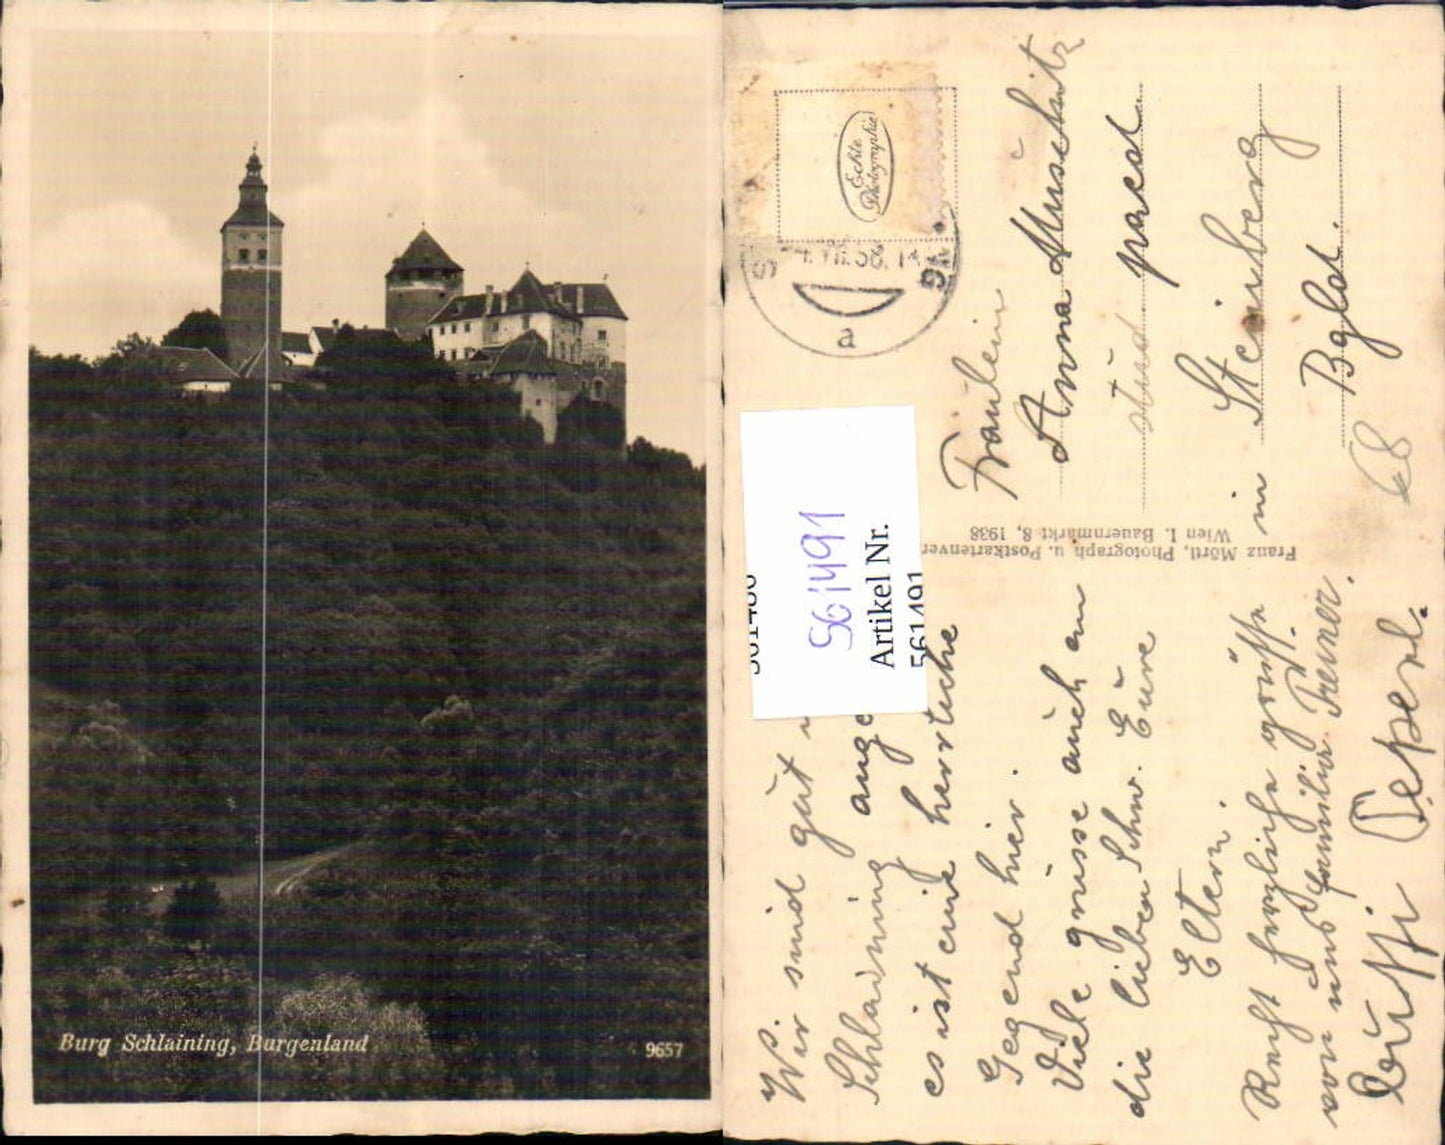 Burg Schlaining, Burgenland
9657
Echte
Photographie
a
561491
Artikel Nr.
561491
Fräulein
Anna Muschitz
stud paed.
in Steinberg
Bgld.
68
Franz Mörtl, Photograph u. Postkartenver
Wien I. Bauernmarkt 8, 1938
Wir sind gut
Schlaining ange
es ist eine herrliche
Gegend hier.
Viele grüsse auch an
die lieben Schw. Eure
Eltern.
Recht herzliche grüsse
von uns familie